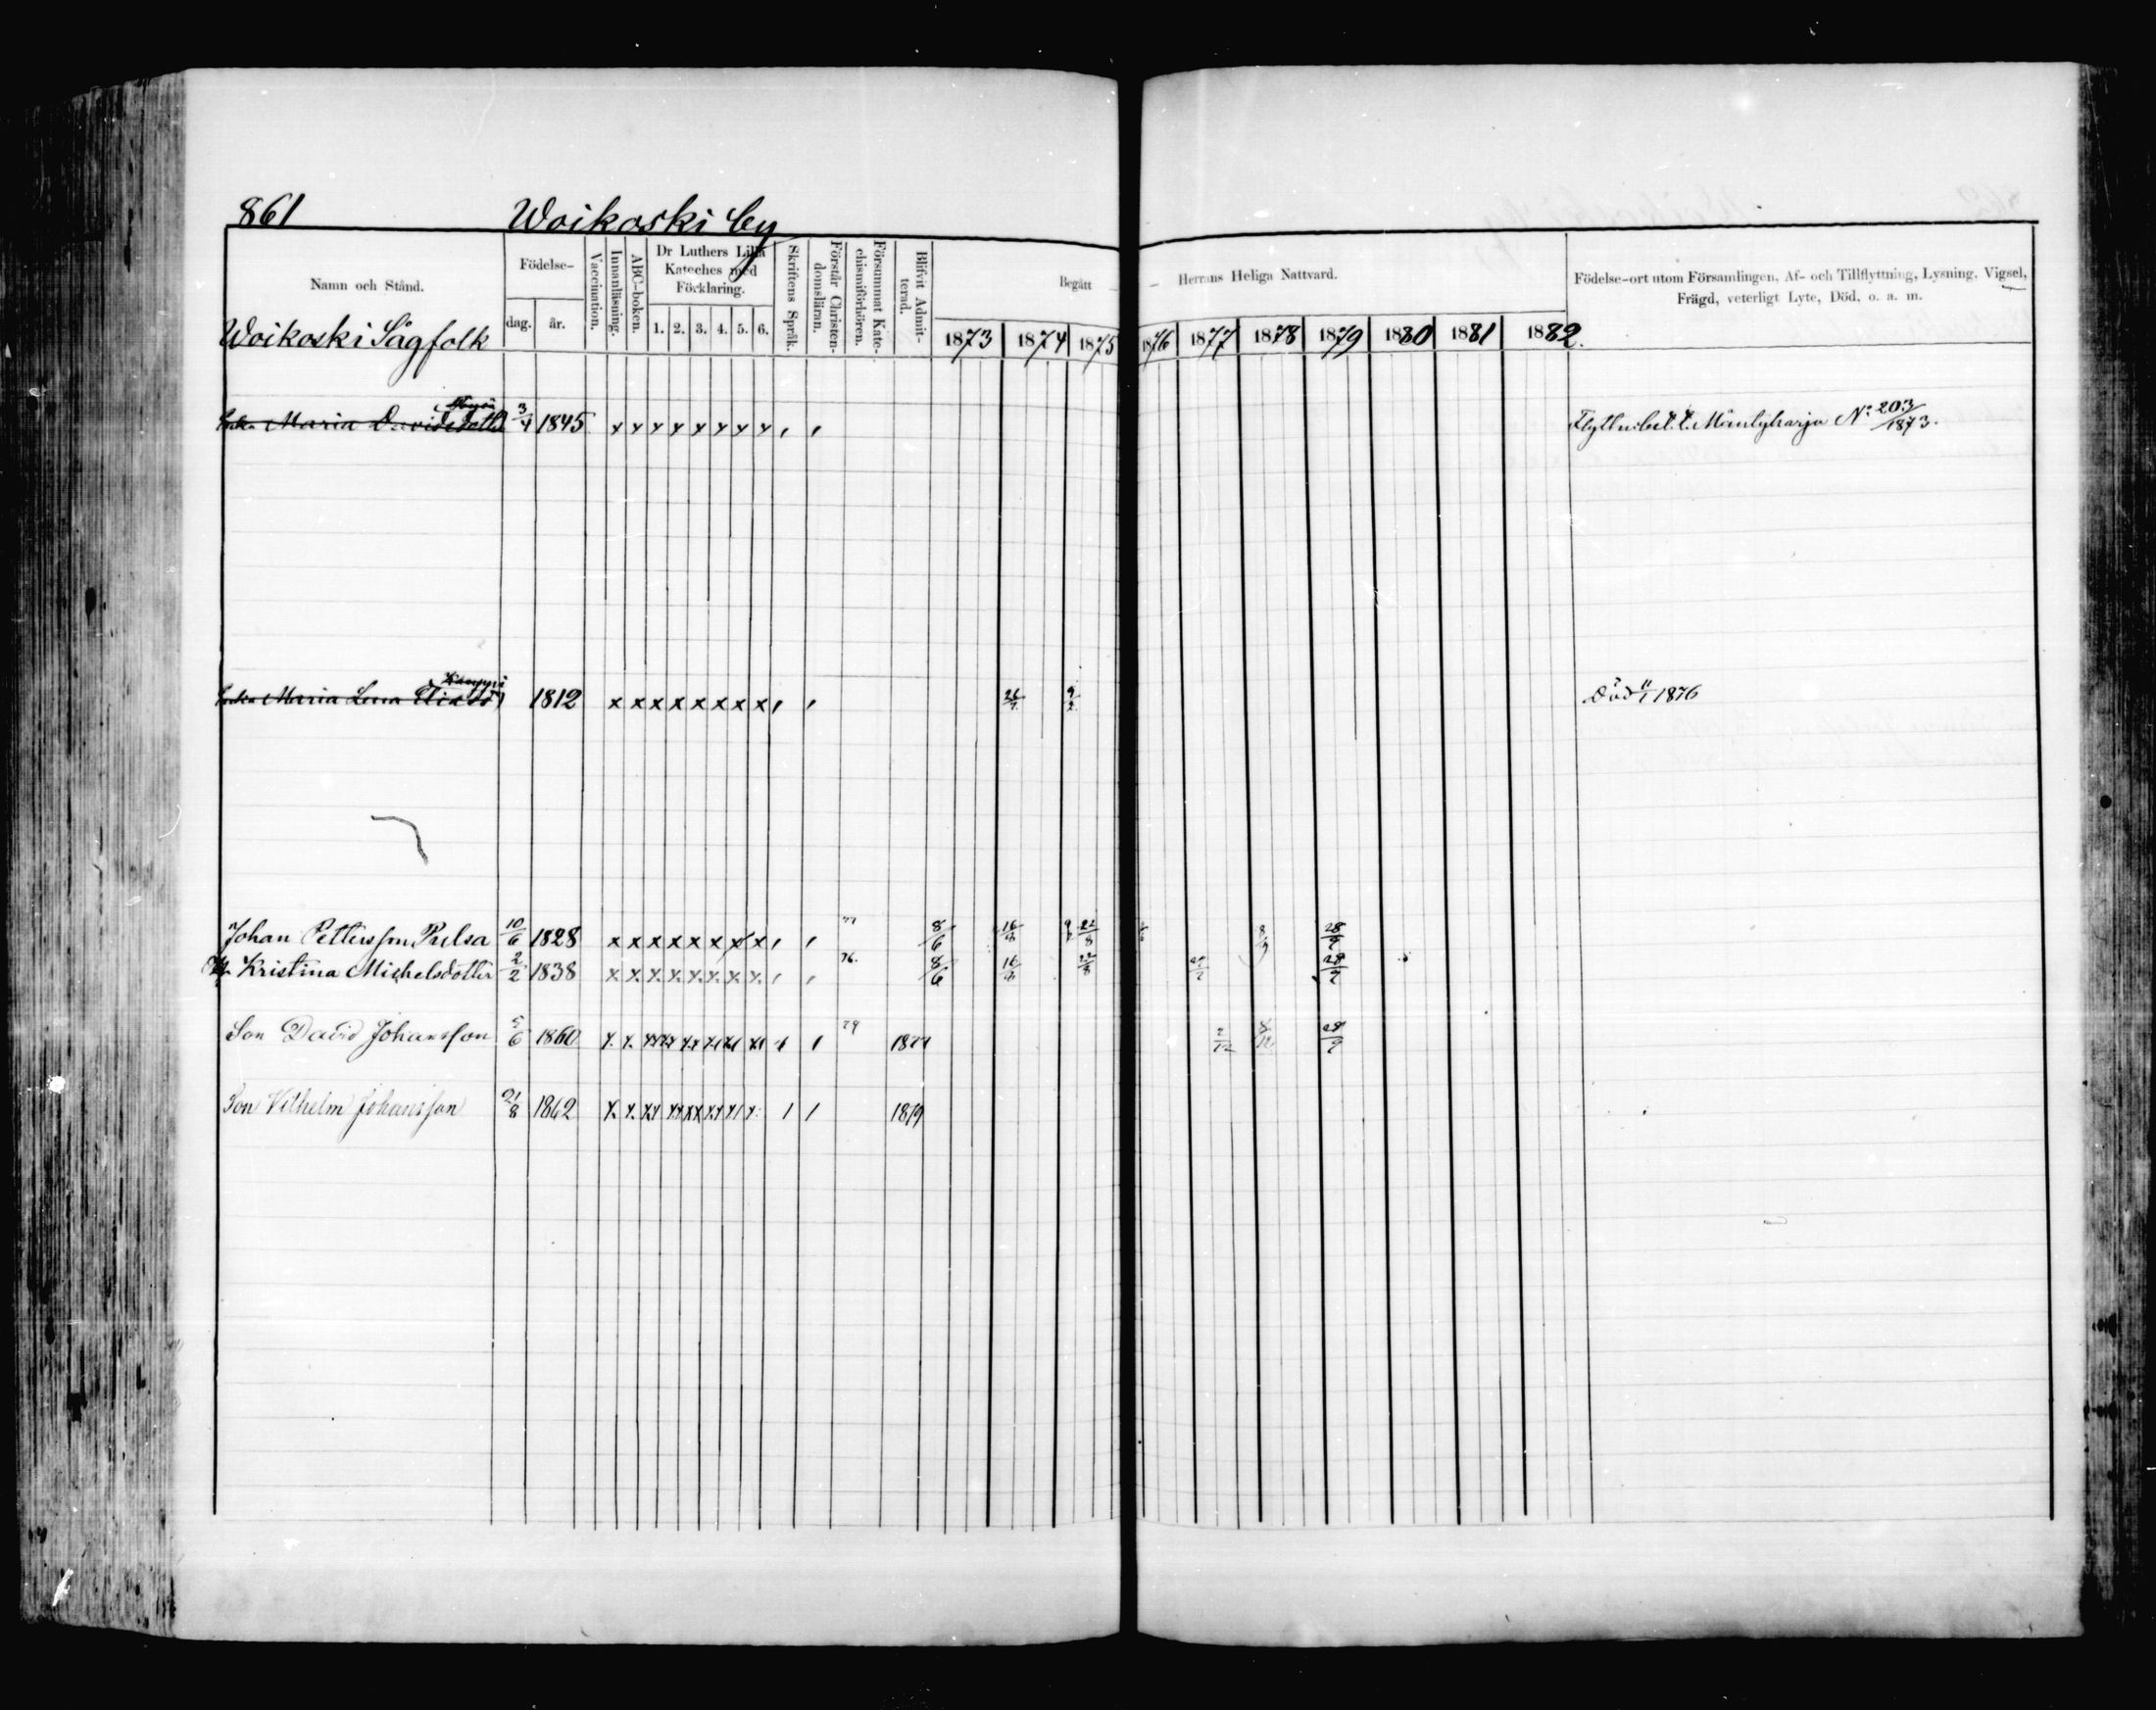 861 Woikoski by
Namn och Stånd.
Födelse-
dag. år.
Vaccination.
Innanläsning.
ABC-boken.
Dr Luthers Lilla
Kateches med
Förklaring.
1. 2. 3. 4. 5. 6.
Skriftens Språk.
Förstår Christen-
domsläran.
Försummat Kate-
chismiförhören.
Blifvit Admit-
terad.
Begått Herrans Heliga Nattvard.
1873 1874 1875 1876 1877 1878 1879 1880 1881 1882.
Födelse-ort utom Församlingen, Af- och Tillflyttning, Lysning, Vigsel,
Frägd, veterligt Lyte, Död, o. a. m.
Woikoski Sågfolk
Enka Maria Davidsdotter 3/4 1845 x x x x x x x x , , Flyttn:bet. t. Mäntyharju No 203/1873.
Kämppi
Enka Maria Lena 1812 x x x x x x x x , , 9/2 Död 11/1 1876
Johan Pettersson Pulsa 10/6 1828 x x x x x x x x , , 77 8/6 16/8 9/2 22/8 8/9 28/9
Kristina Michelsdotter 2/2 1838 x x x x x x x x , , 76. 8/6 16/8 22/8 28/9
Son David Johansson 5/6 1860 x x xx xx xx x x x 79 1877 2/12 8/12 28/9
Son Vilhelm Johansson 21/8 1862 x x xx xx xx xx x x / / 1879